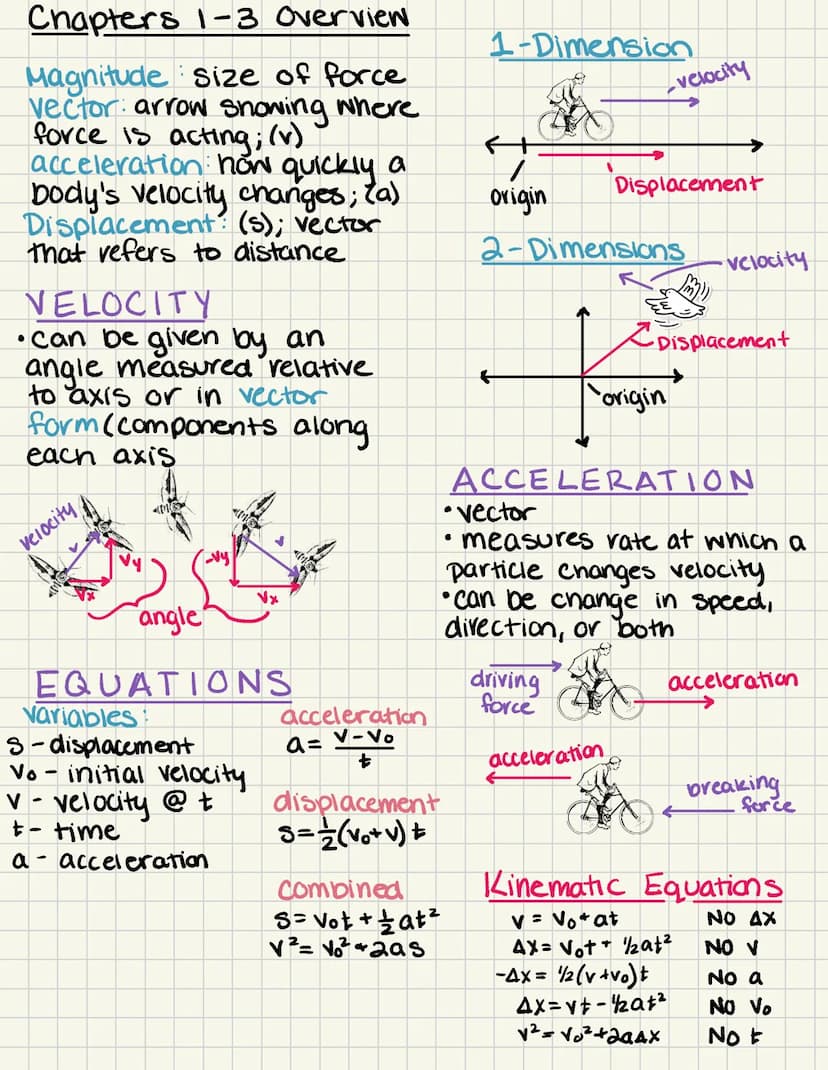 Chapters 1-3 Overview
Magnitude: size of force
vector: arrow showing where
force is acting; (v)
acceleration: how quickly a
body's velocity changes; (a)
Displacement: (s); vector
that refers to distance
VELOCITY
• can be given by an
angle measured relative
to axis or in vector
form (components along
each axis
velocity
v
Vy
Vx
-Vy
v
Vx
angle
EQUATIONS
variables:
s - displacement
V₀ - initial velocity
v - velocity @ t
t - time
a - acceleration
acceleration
a = v-v₀
t
displacement
s=½(v₀+v)t
combined
s= v₀t + ½at²
v²= v₀²+2as
1-Dimension
velocity
origin
Displacement
2-Dimensions
velocity
Displacement
origin
ACCELERATION
• vector
• measures rate at which a
particle changes velocity
• can be change in speed,
direction, or both
driving
force
acceleration
acceleration
breaking
force
Kinematic Equations
v = v₀+at No Δx
Δx= v₀t + ½at² No v
-Δx = ½(v+v₀)t No a
Δx=vt-½at² No v₀
v²= v₀²+2aΔx No t